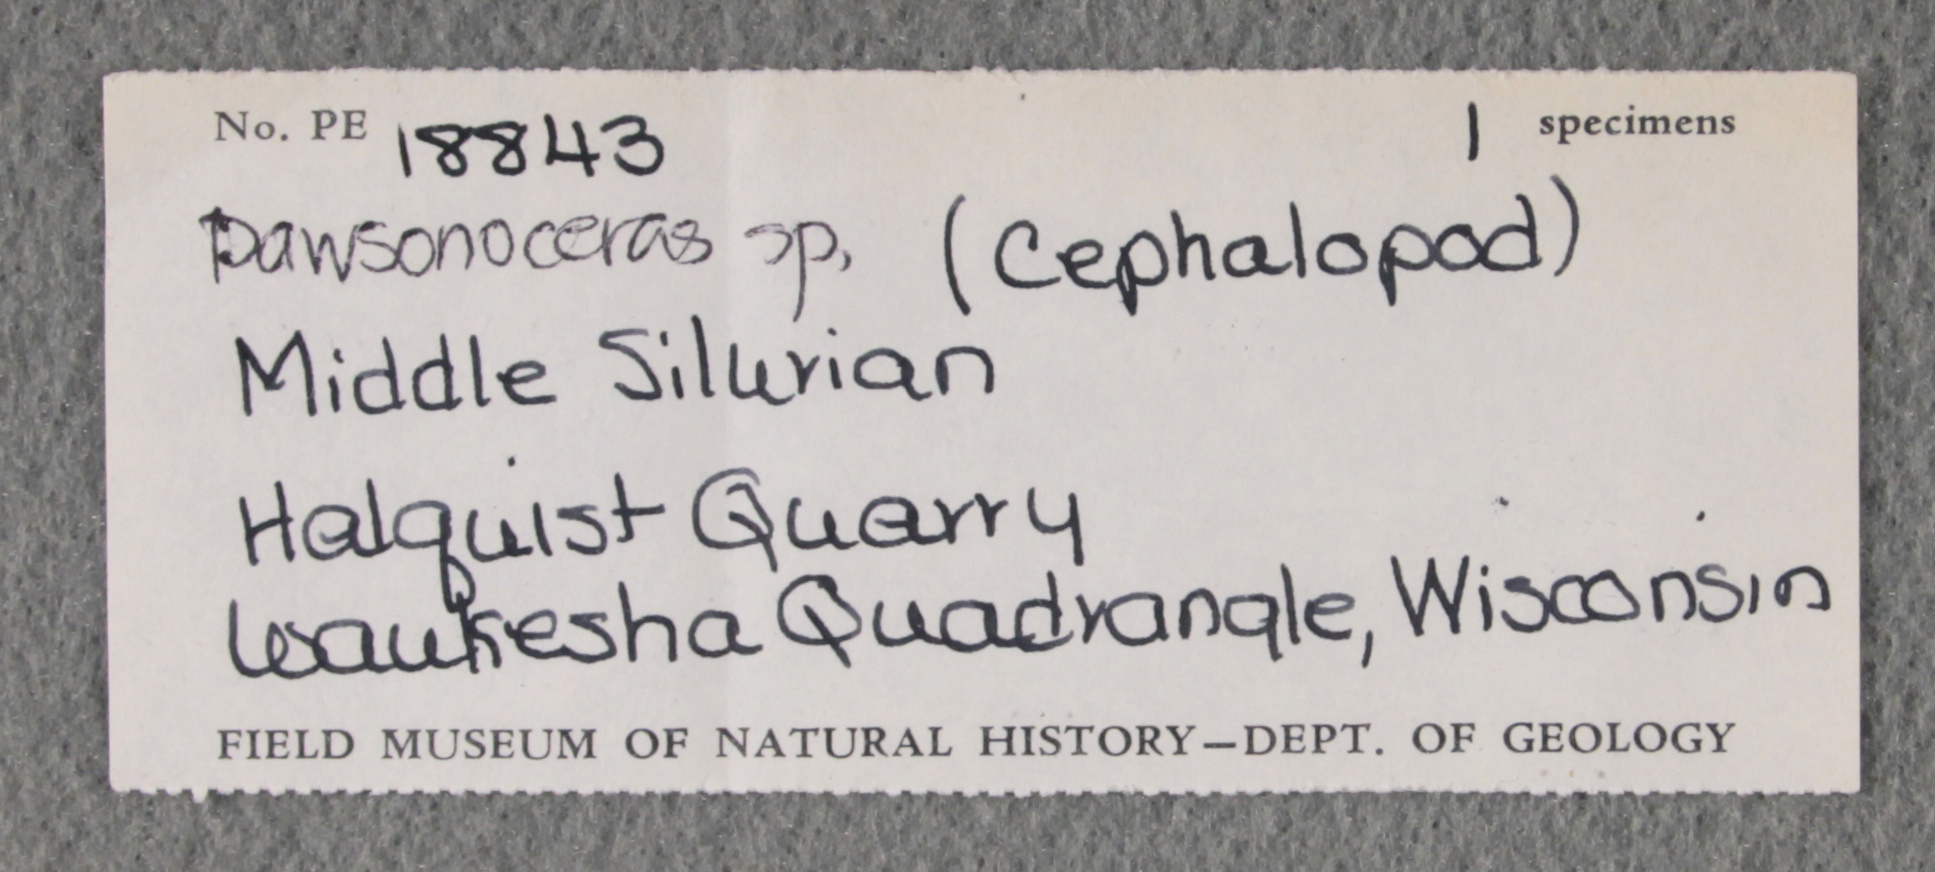 No. PE 18843 1 specimens
Dawsonoceras sp. (Cephalopod)
Middle Silurian
Halquist Quarry
Waukesha Quadrangle, Wisconsin
FIELD MUSEUM OF NATURAL HISTORY–DEPT. OF GEOLOGY